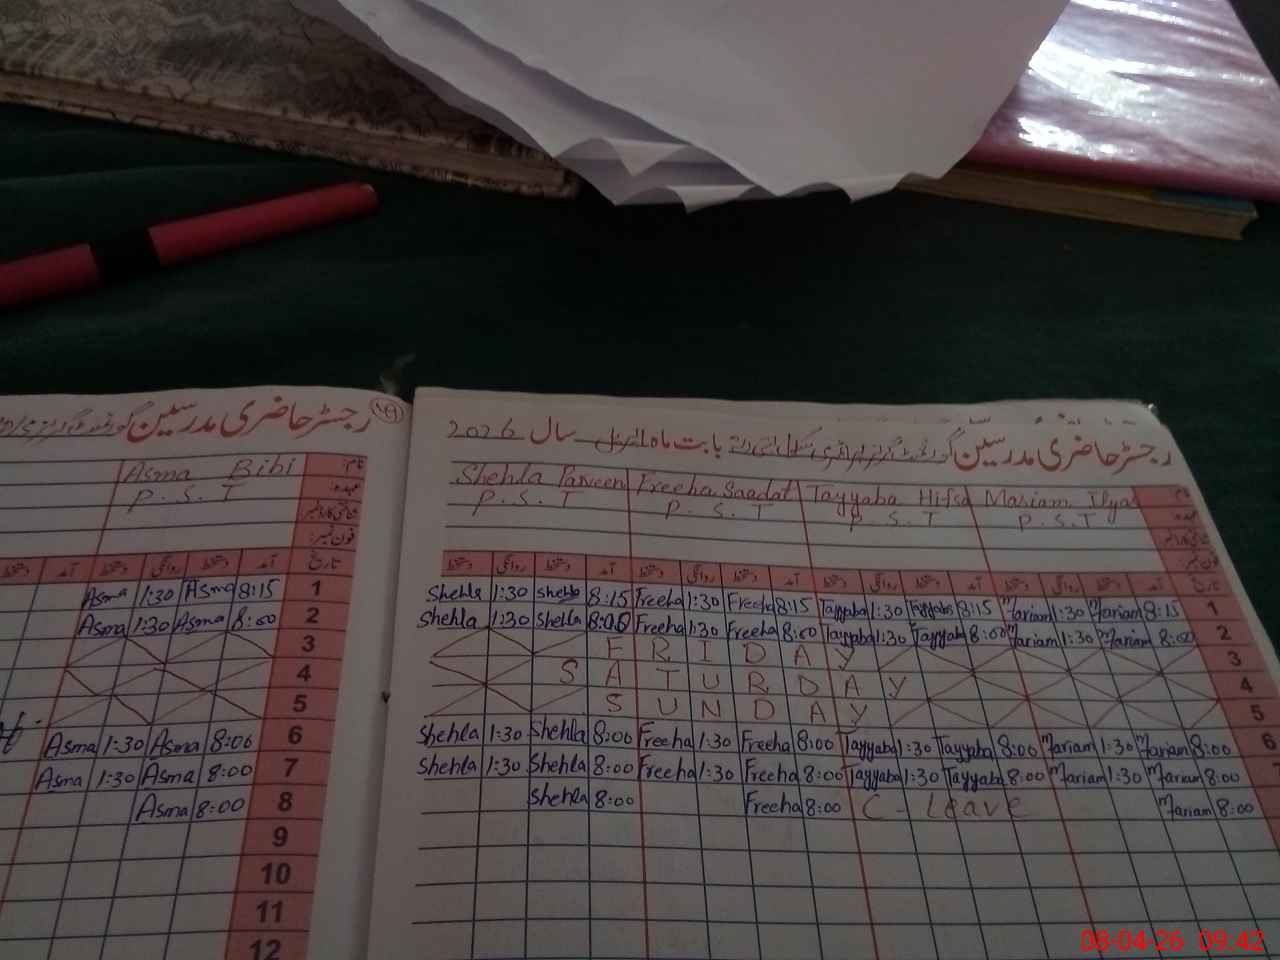 رجسٹر حاضری مدرسین
Asma Bibi نام:
P.S.T عہدہ:
فون نمبر:
دستخط آمد دستخط روانگی دستخط آمد تاریخ
Asma 1:30 Asma 8:15 1
Asma 1:30 Asma 8:00 2
3
4
5
Asma 1:30 Asma 8:00 6
Asma 1:30 Asma 8:00 7
Asma 8:00 8
9
10
11
12
رجسٹر حاضری مدرسین بابت ماہ اپریل سال 2026
Shehla Parveen Freeha Saadat Tayyaba Hifsa Mariam Ilyas نام
P.S.T P.S.T P.S.T P.S.T عہدہ
دستخط روانگی دستخط آمد دستخط روانگی دستخط آمد دستخط روانگی دستخط آمد دستخط روانگی دستخط آمد تاریخ
Shehla 1:30 Shehla 8:15 Freeha 1:30 Freeha 8:15 Tayyaba 1:30 Tayyaba 8:15 Mariam 1:30 Mariam 8:15 1
Shehla 1:30 Shehla 8:00 Freeha 1:30 Freeha 8:00 Tayyaba 1:30 Tayyaba 8:00 Mariam 1:30 Mariam 8:00 2
FRIDAY 3
SATURDAY 4
SUNDAY 5
Shehla 1:30 Shehla 8:00 Freeha 1:30 Freeha 8:00 Tayyaba 1:30 Tayyaba 8:00 Mariam 1:30 Mariam 8:00 6
Shehla 1:30 Shehla 8:00 Freeha 1:30 Freeha 8:00 Tayyaba 1:30 Tayyaba 8:00 Mariam 1:30 Mariam 8:00 7
Shehla 8:00 Freeha 8:00 C-Leave Mariam 8:00
08-04-26 09:42